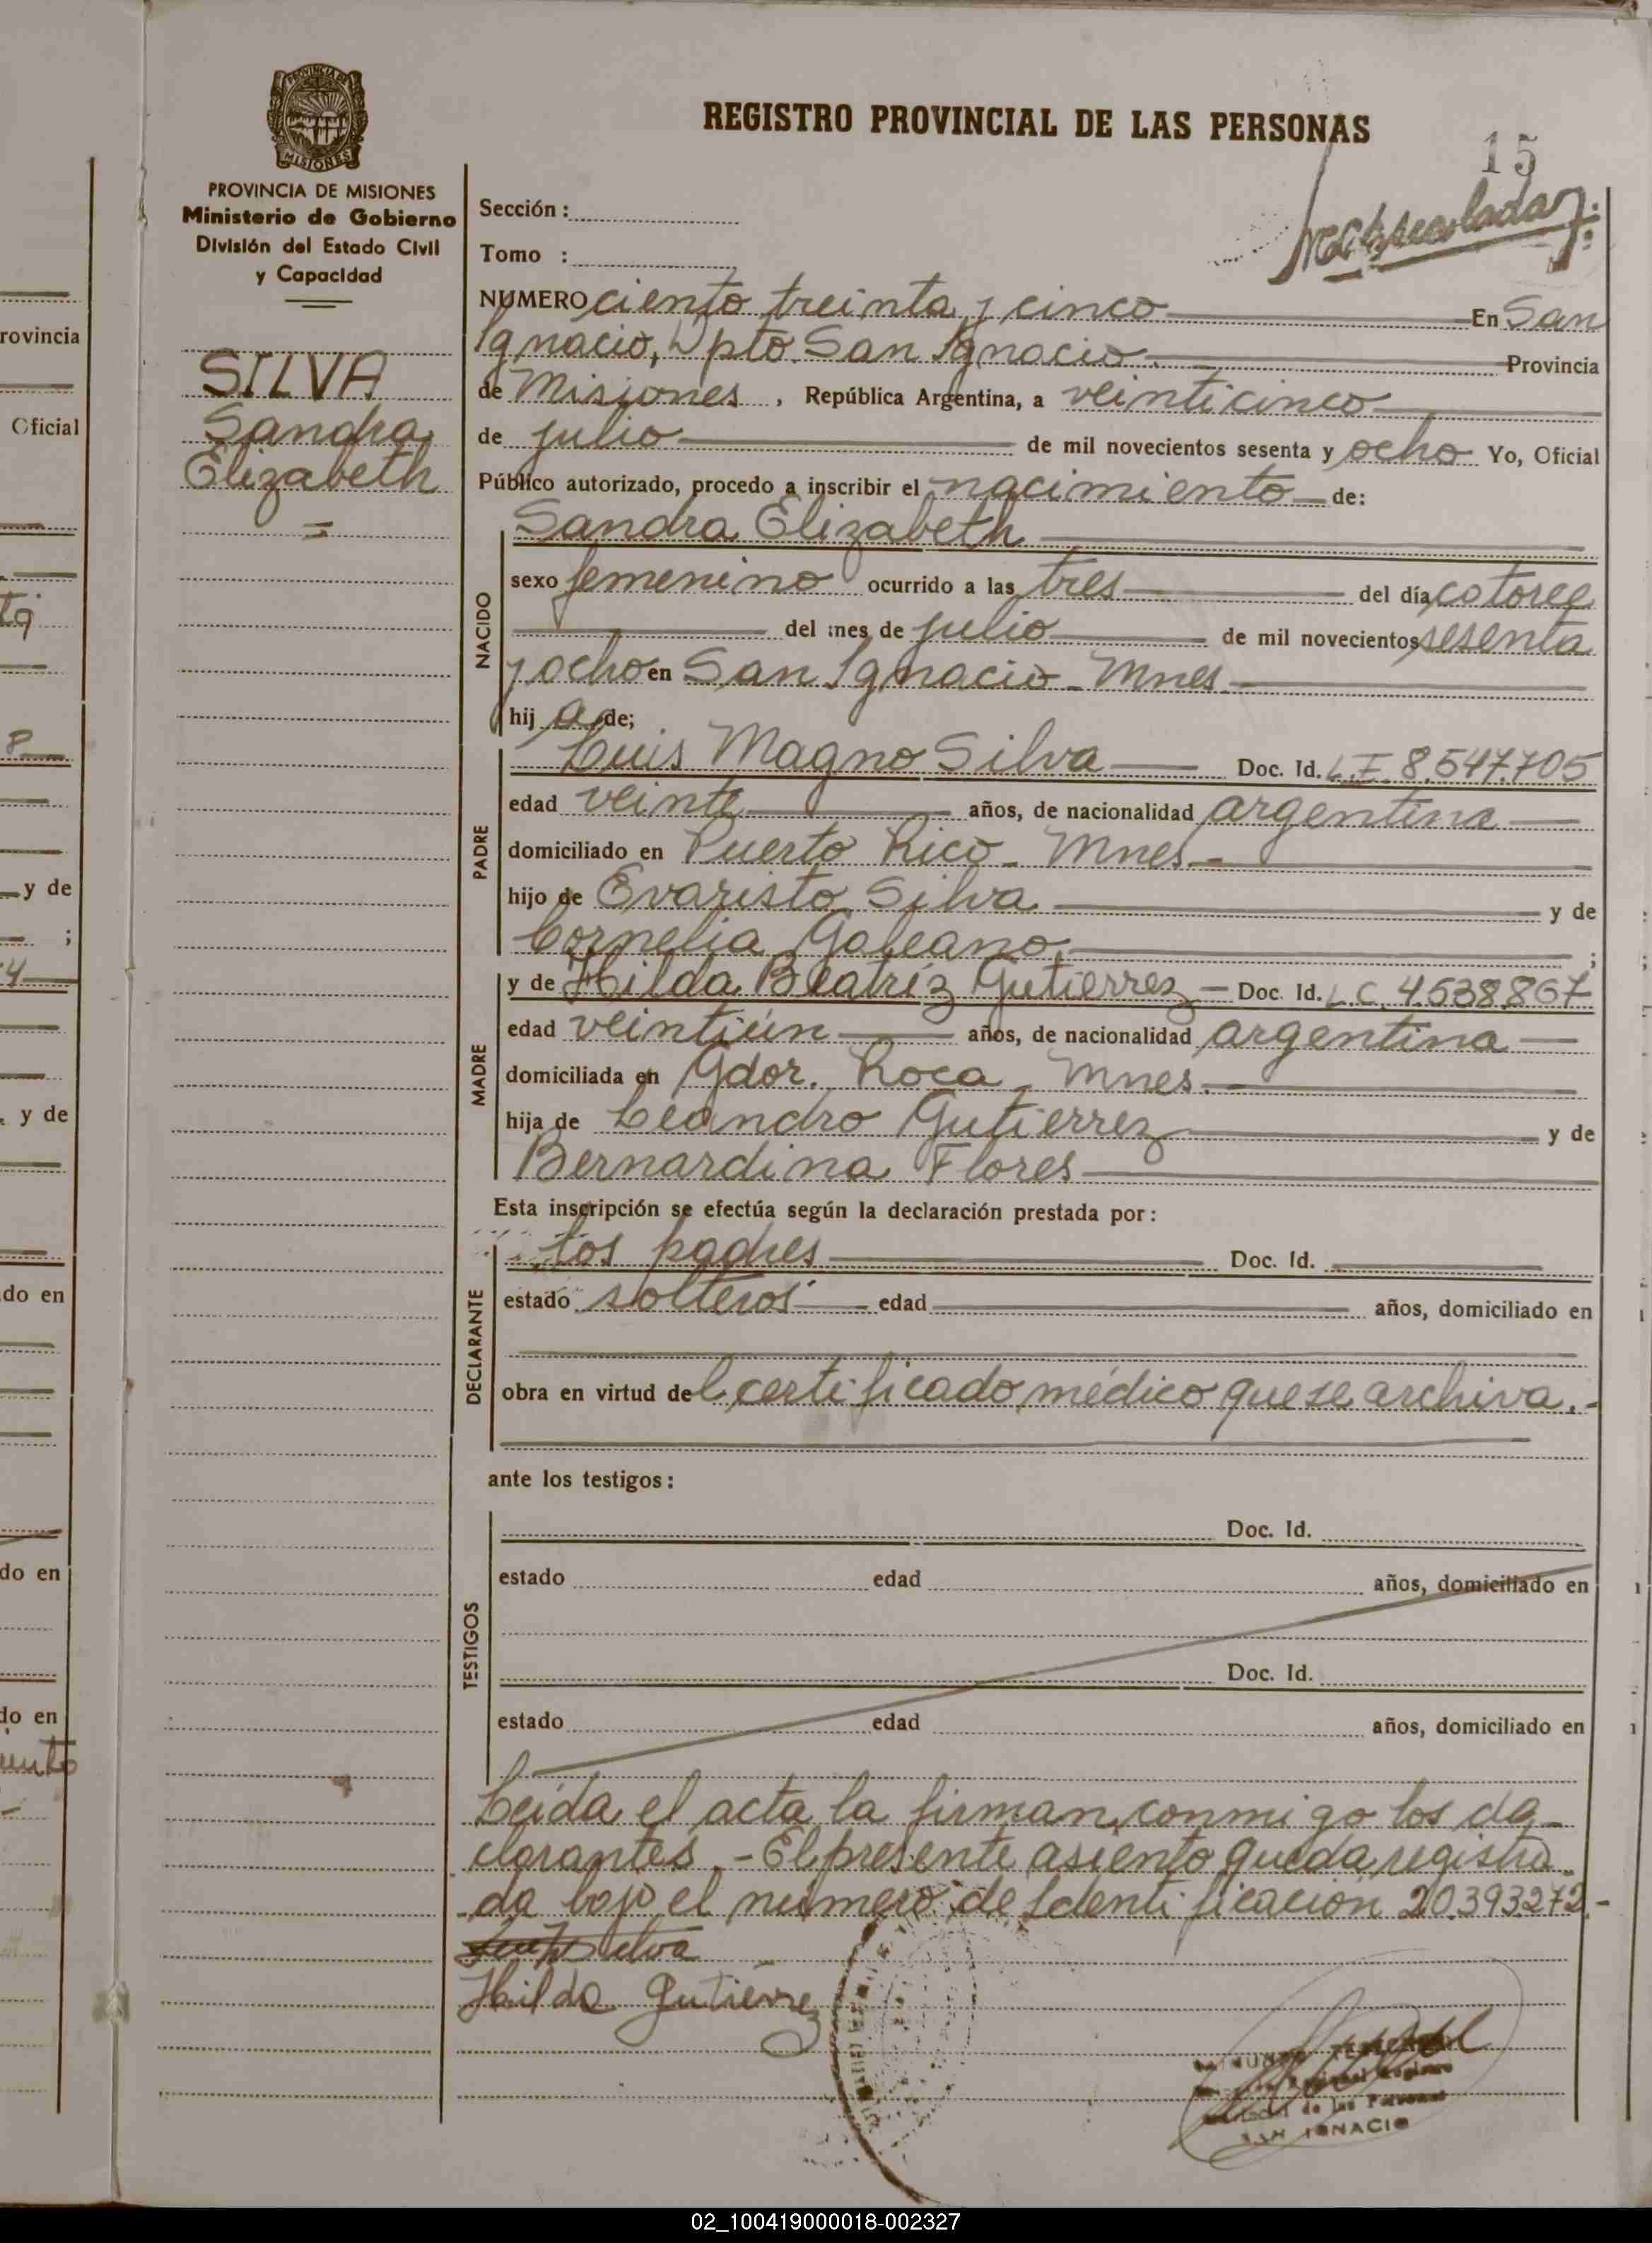 REGISTRO PROVINCIAL DE LAS PERSONAS
15
PROVINCIA DE MISIONES
Ministerio de Gobierno
División del Estado Civil
y Capacidad
SILVA
Sandra
Elizabeth
Sección :
Tomo :
NUMERO ciento treinta y cinco En San
Ignacio, Dpto San Ignacio. Provincia
de Misiones, República Argentina, a veinticinco
de julio de mil novecientos sesenta y ocho Yo, Oficial
Público autorizado, procedo a inscribir el nacimiento de:
NACIDO
Sandra Elizabeth
sexo femenino ocurrido a las tres del día catorce
del mes de julio de mil novecientos sesenta
y ocho en San Ignacio - Mnes.
hij a de;
PADRE
Luis Magno Silva Doc. Id. L.E. 8.547.705
edad veinte años, de nacionalidad argentina
domiciliado en Puerto Rico - Mnes.
hijo de Evaristo Silva y de
Cornelia Galeano ;
MADRE
y de Hilda Beatríz Gutierrez - Doc. Id. L.C. 4.538.867
edad veintiún años, de nacionalidad argentina
domiciliada en Gdor. Roca - Mnes.
hija de Leandro Gutierrez y de
Bernardina Flores
Esta inscripción se efectúa según la declaración prestada por :
DECLARANTE
los padres Doc. Id.
estado solteros edad años, domiciliado en
obra en virtud del certificado médico que se archiva.-
ante los testigos :
TESTIGOS
Doc. Id.
estado edad años, domiciliado en
Doc. Id.
estado edad años, domiciliado en
Leída el acta la firman conmigo los de-
clarantes.- El presente asiento queda registra-
da bajo el número de Identificación 20.393.272.-
Silva
Hilda Gutiérrez
de las Personas
SAN IGNACIO
rovincia
Oficial
y de
;
y de
do en
do en
do en
02_100419000018-002327